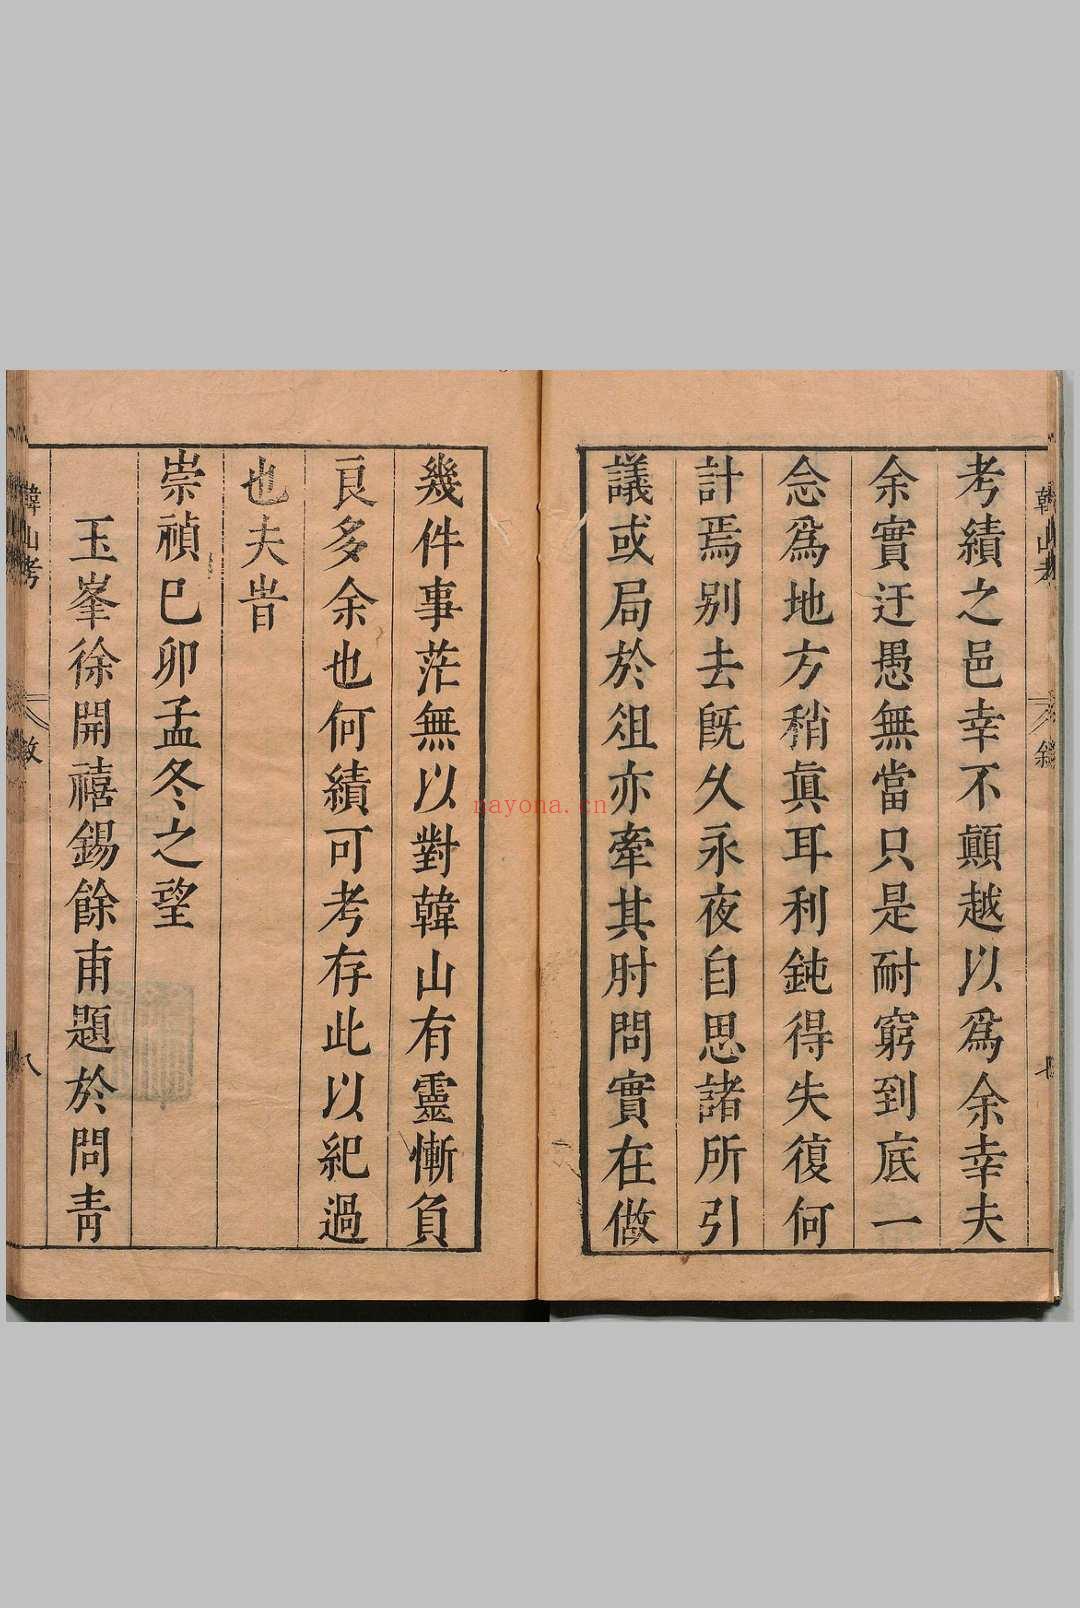 考績之邑幸不顛越以爲余幸夫
余實迂愚無當只是耐窮到底一
念爲地方稍眞耳利鈍得失復何
計焉别去旣久永夜自思諸所引
議或局於俎亦牽其肘問實在做
幾件事茫無以對韓山有靈慚負
良多余也何績可考存此以紀過
也夫旹
崇禎巳卯孟冬之望
玉峯徐開禧錫餘甫題於問靑
韓山考
八
nayona.cn